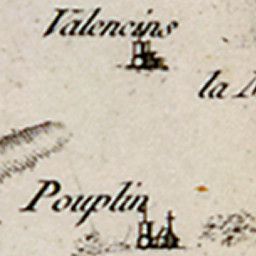 Valencins
la
Pouplin